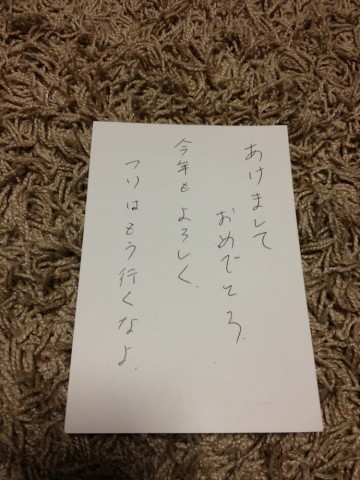 あけまして
おめでとう.
今年もよろしく.
つりはもう行くなよ.